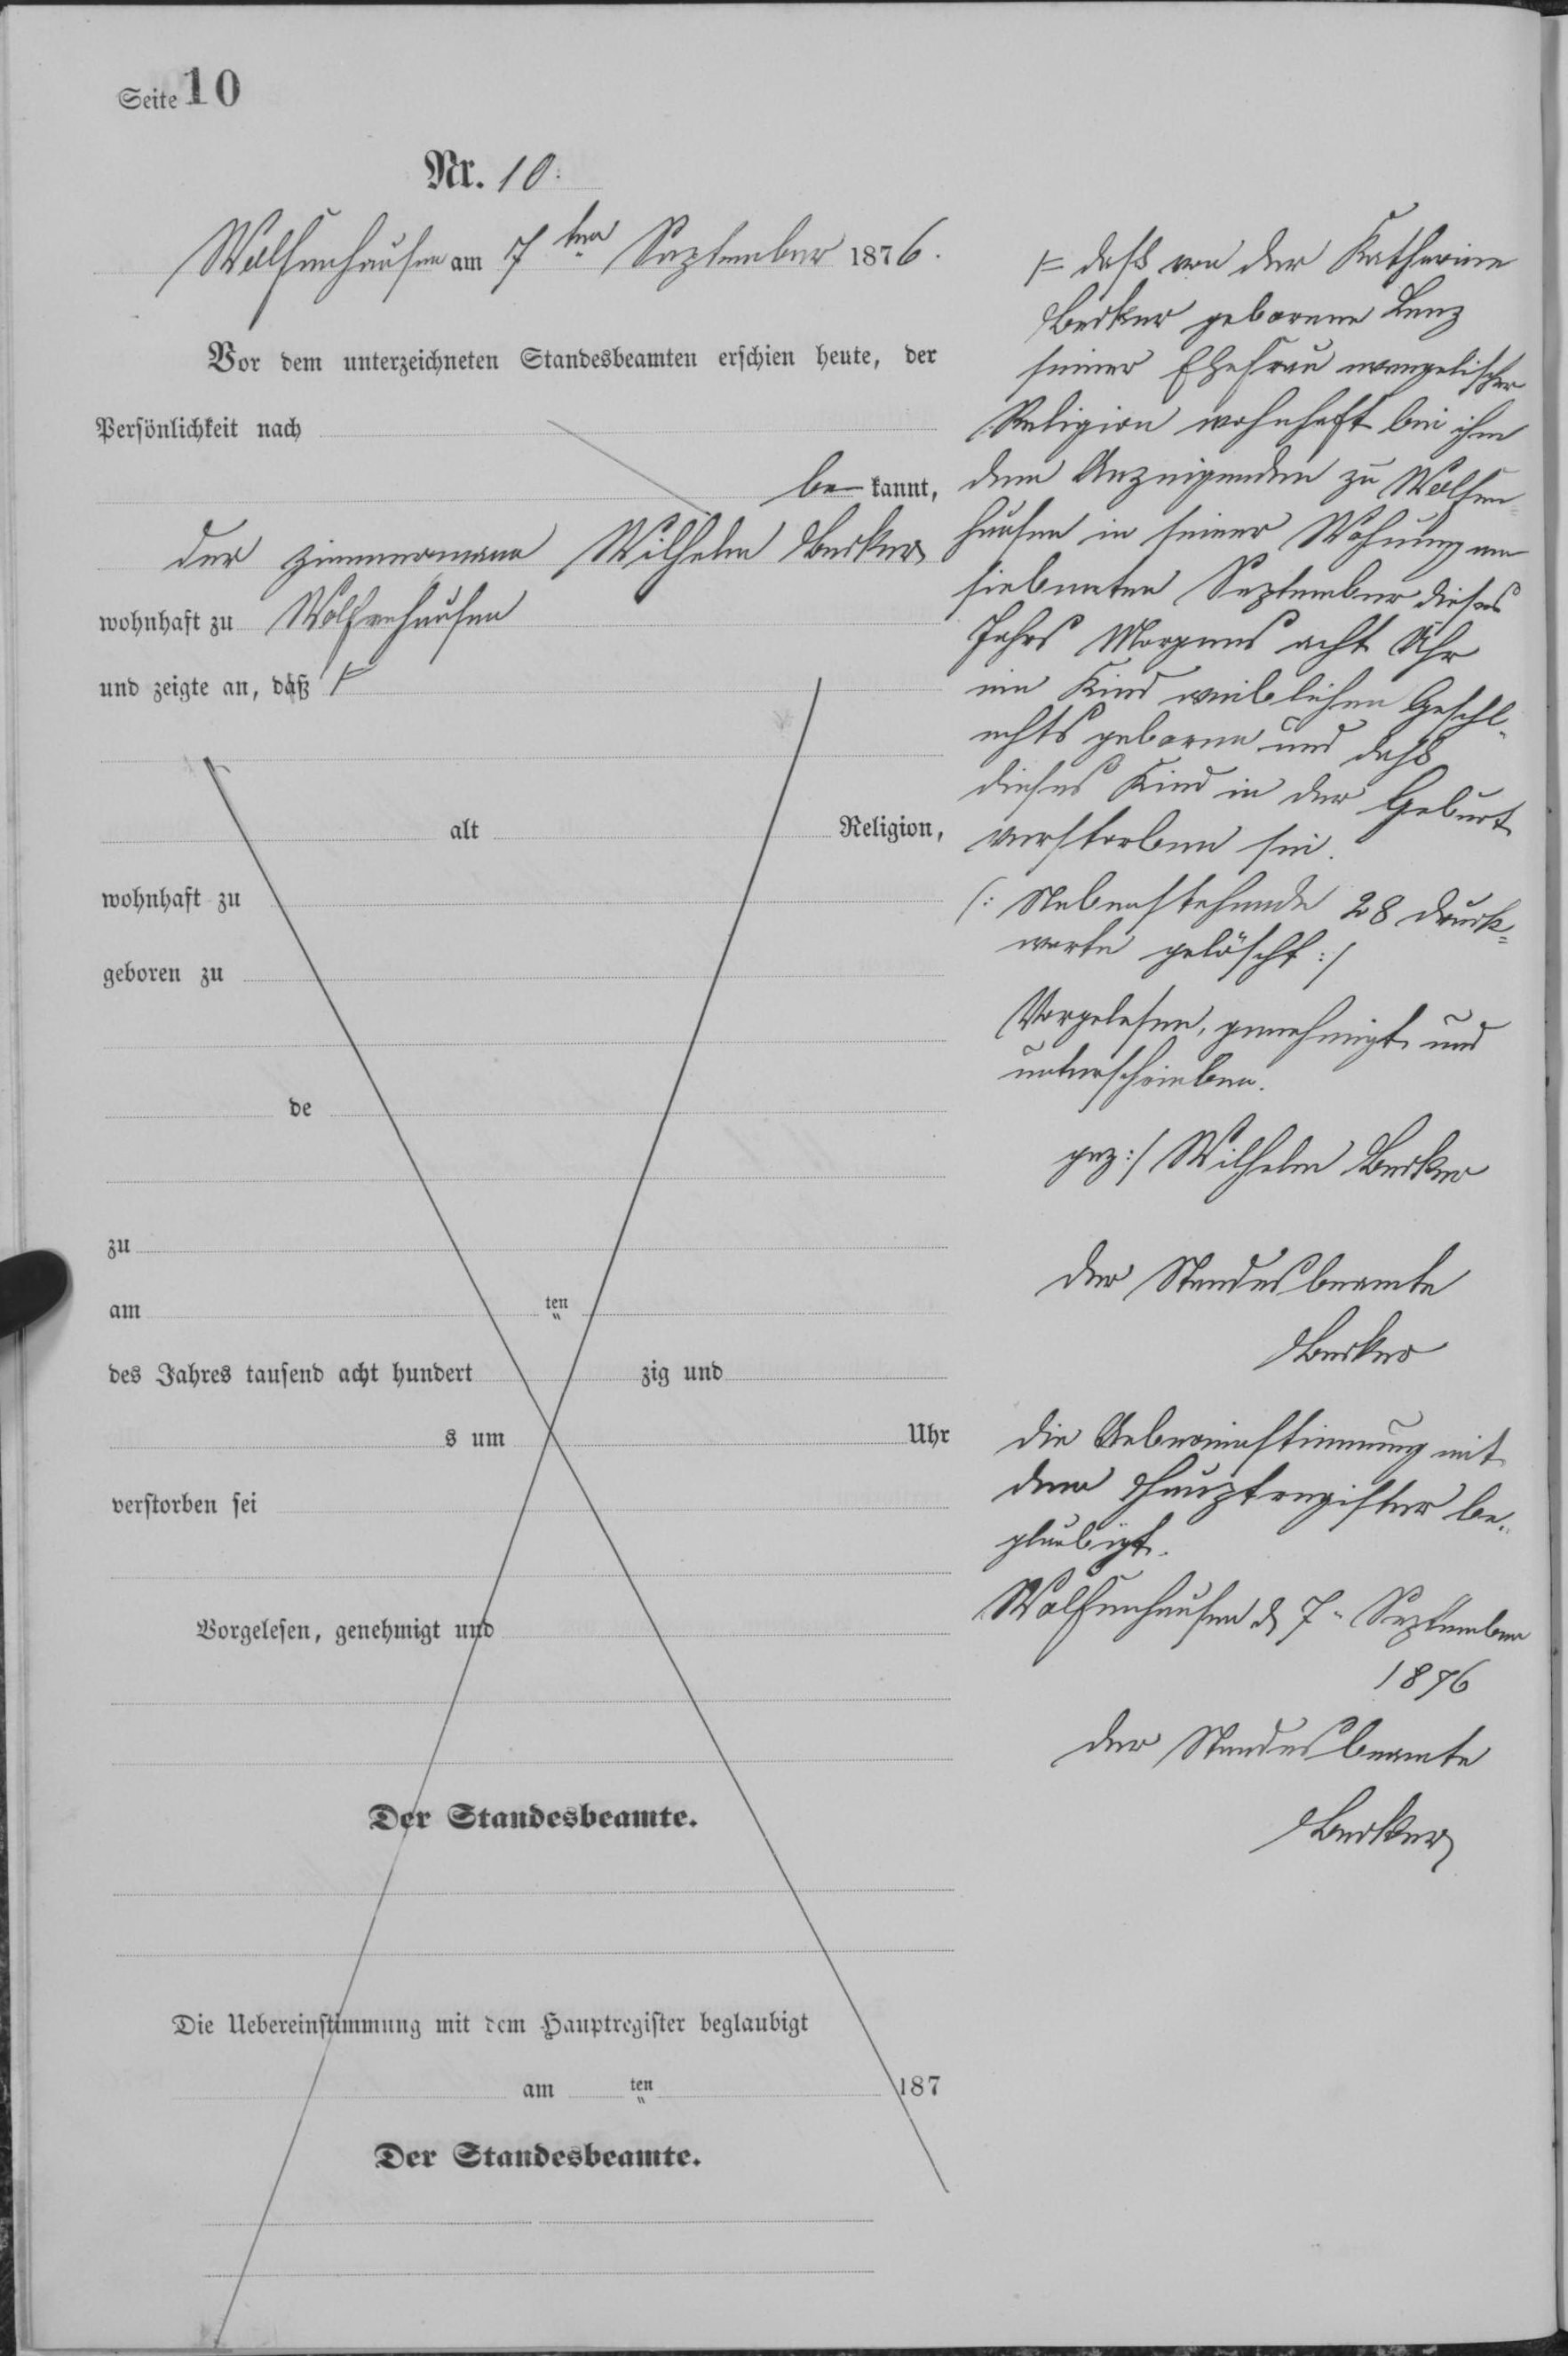 Seite 10
Nr. 10.
Wolfenhausen am 7ten September 1876.
Vor dem unterzeichneten Standesbeamten erschien heute, der
Persönlichkeit nach
be kannt,
der Zimmermann Wilhelm Becker
wohnhaft zu Wolfenhausen
und zeigte an, daß
alt Religion,
wohnhaft zu
geboren zu
de
zu
am ten
des Jahres tausend acht hundert zig und
s um Uhr
verstorben sei
Vorgelesen, genehmigt und
Der Standesbeamte.
Die Uebereinstimmung mit dem Hauptregister beglaubigt
am ten 187
Der Standesbeamte.
daß von der Katharine
Becker geborene Lenz
seiner Ehefrau evangelischer
Religion wohnhaft bei ihm
dem Anzeigenden zu Wolfen
hausen in seiner Wohnung am
siebenten September dieses
Jahrs Morgens acht Uhr
ein Kind weiblichen Geschl-
echts geboren und daß
dieses Kind in der Geburt
verstorben sei.
(: Nebenstehende 28 Druck=
worte gelöscht :/
Vorgelesen, genehmigt und
unterschrieben.
gez:/ Wilhelm Becker
der Standesbeamte
Becker
die Uebereinstimmung mit
dem Hauptregister be-
glaubigt.
Wolfenhausen d 7" September
1876
der Standesbeamte
Becker